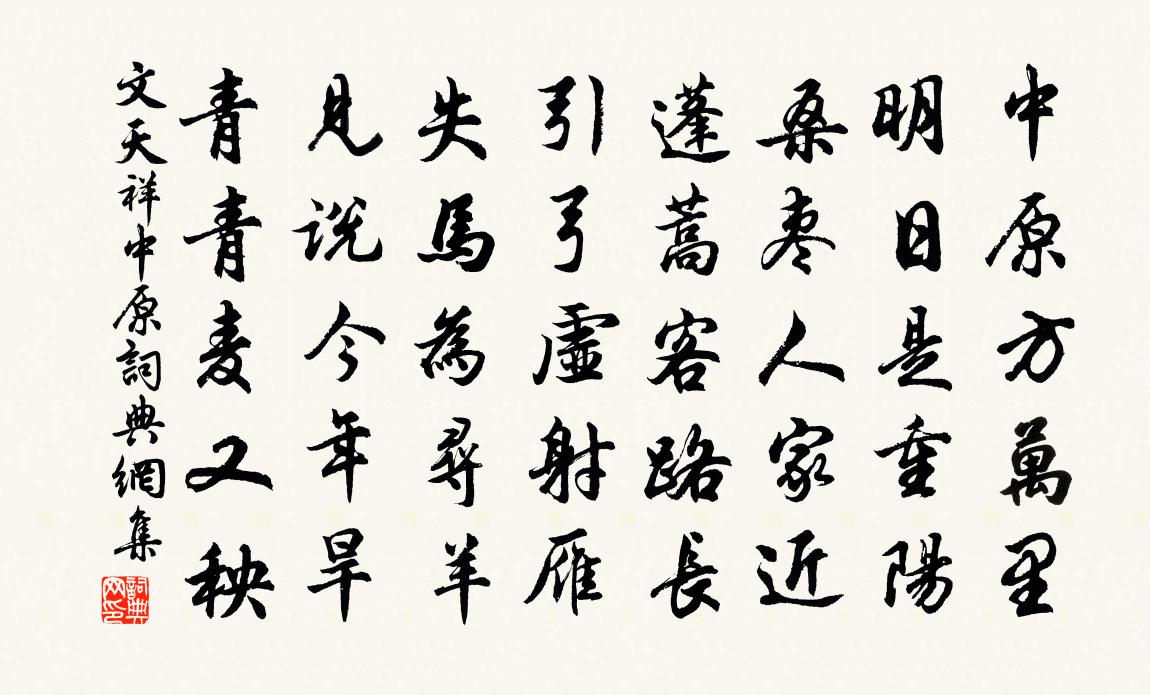 中原方萬里
明日是重陽
桑棗人家近
蓬蒿客路長
引弓虛射雁
失馬為尋羊
見說今年旱
青青麦又秧
文天祥中原詞典網集
詞典網印